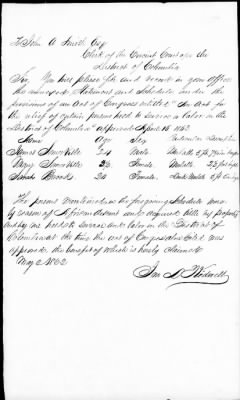 To John A Smith Esq
Clerk of the Circuit Court for the
District of Columbia
Sir, You will please file and record in your Office
the annexed Statement and Schedule under the
provisions of an Act of Congress entitled "An Act for
the relief of certain persons held to service or labor in the
District of Columbia" approved April 16 1862
Name Age Sex
James 24 Male Mulatto 5 ft
Mary 23 Female Mulatto
Sarah Brooks 24 Female Dark Mulatto 5 ft
The persons mentioned in the foregoing Schedule were
by reason of African descent and
and by me held to service and labor in the District of
Columbia at the time the act of Congress above cited was
approved the benefit of which is hereby claimed
May 2 1862